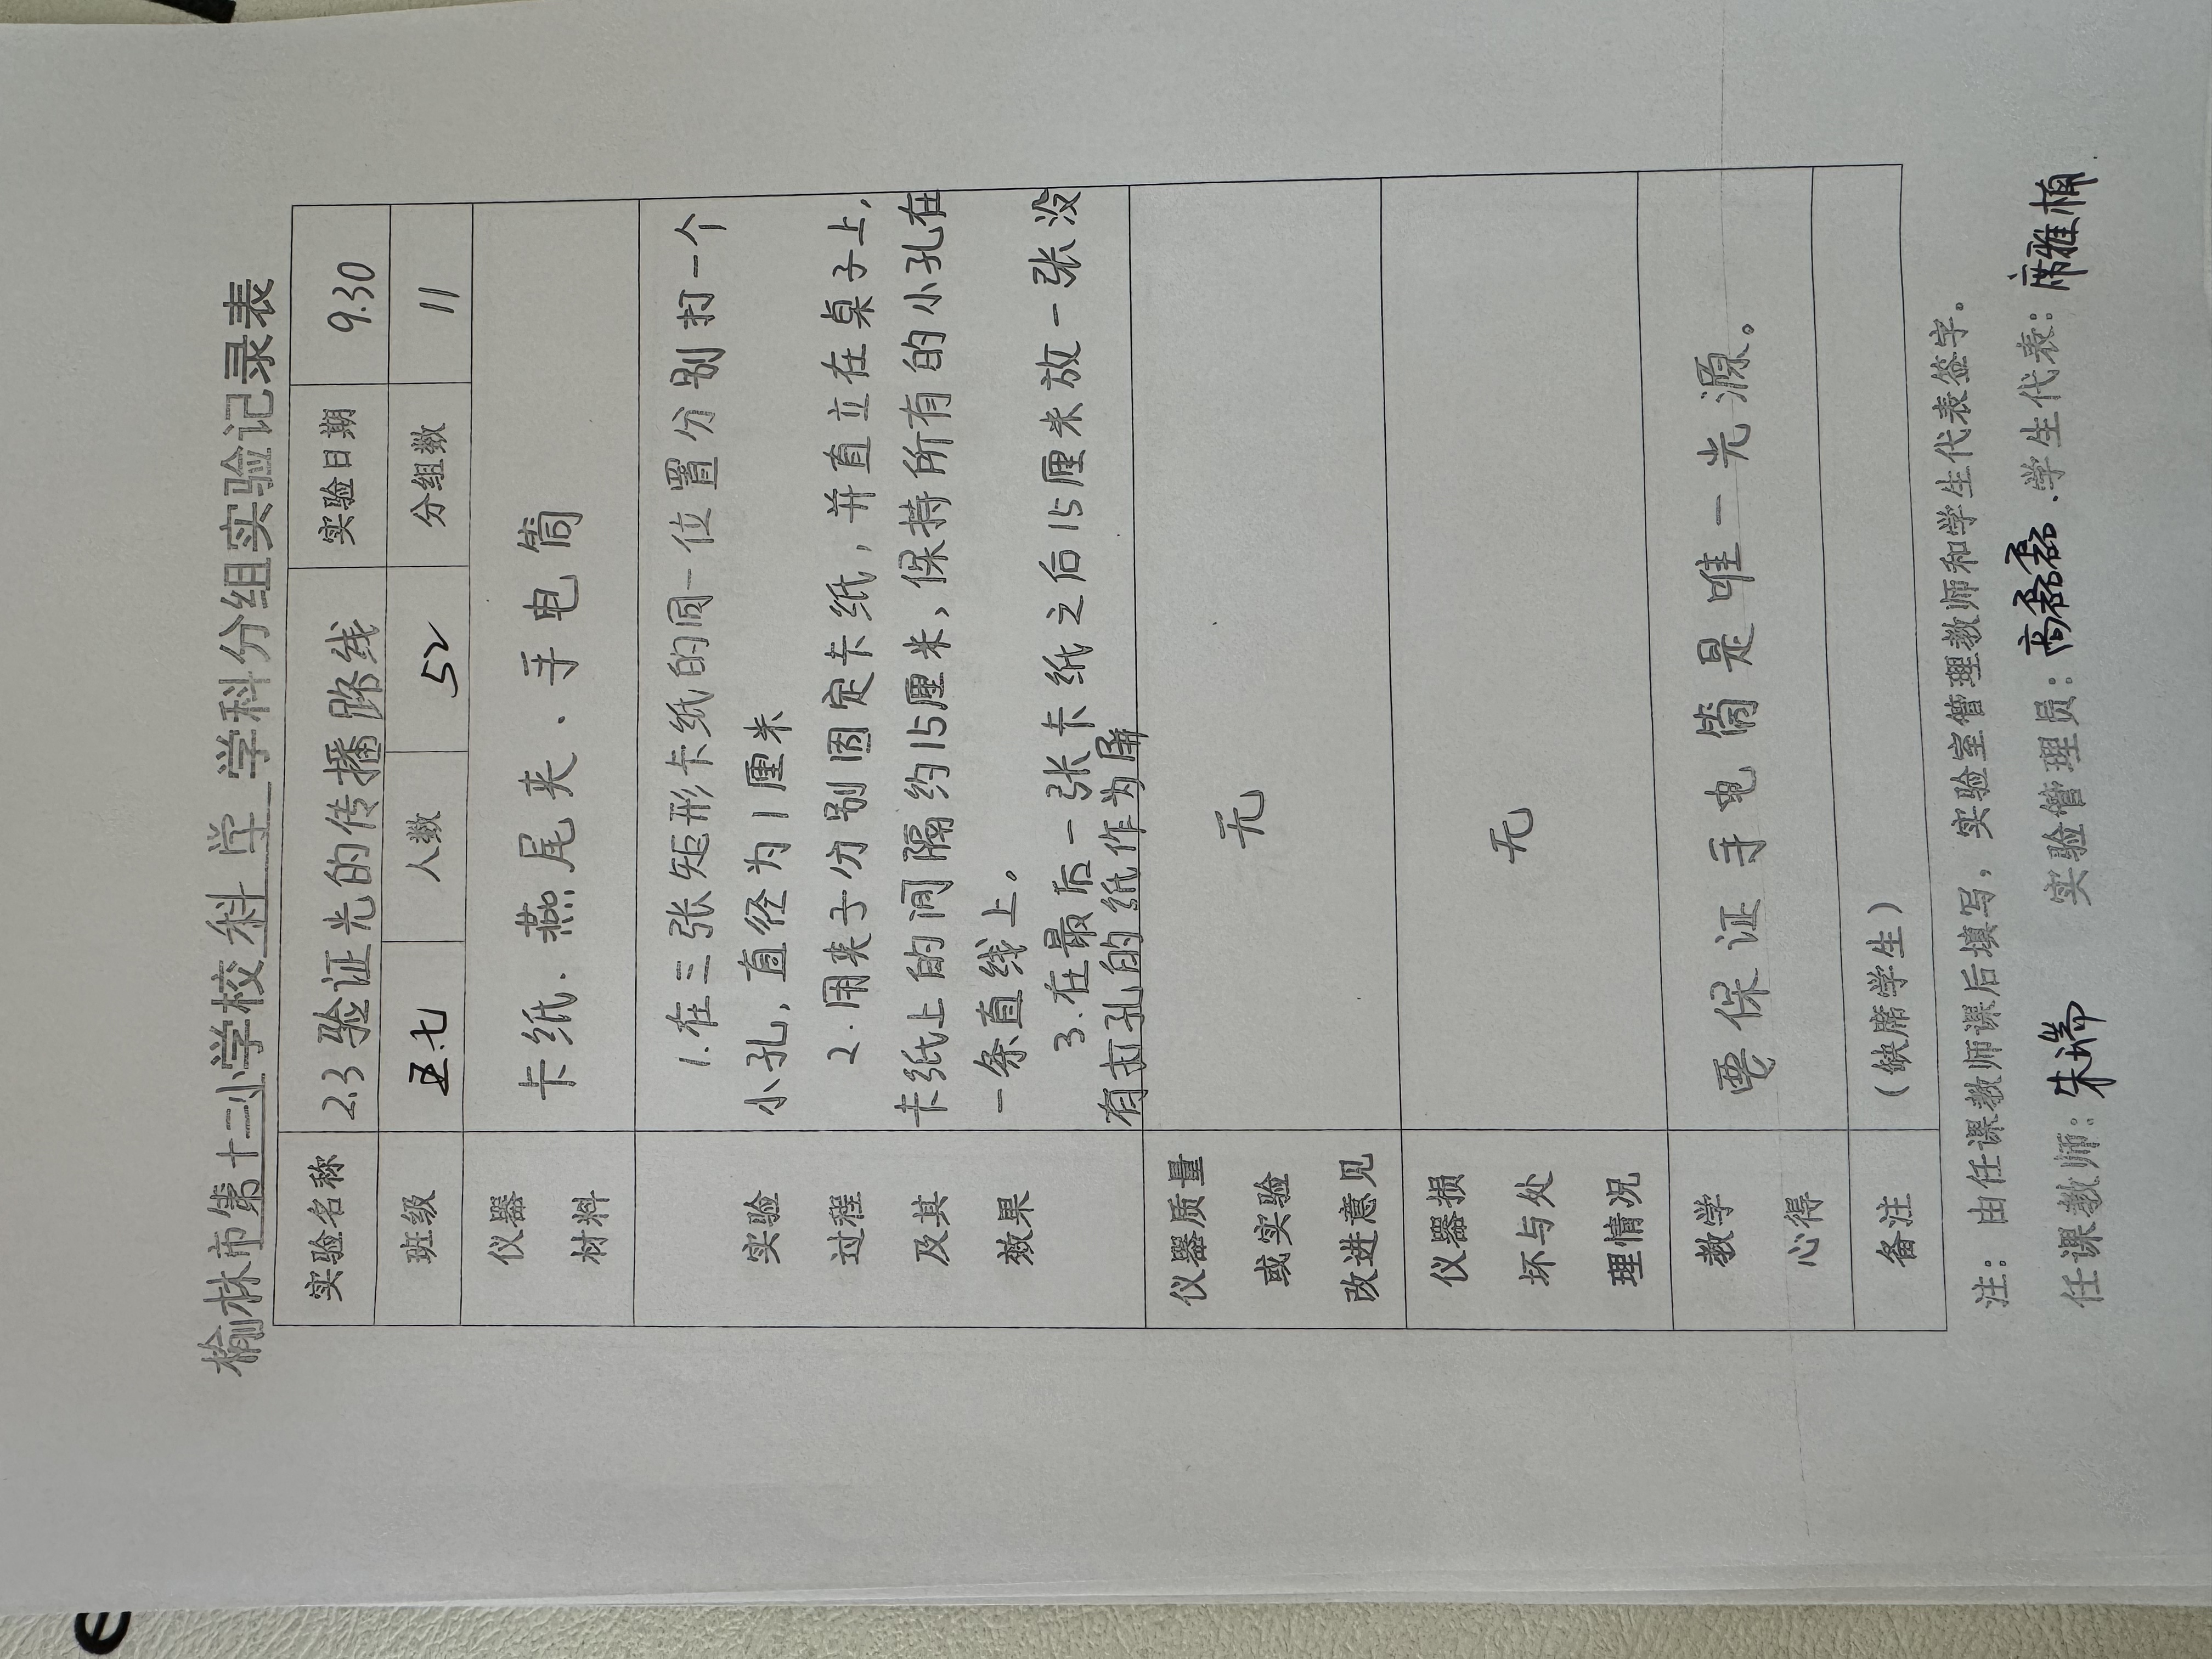 榆林市第十二小学校科学 学科分组实验记录表
实验名称 2.3 验证光的传播路线 实验日期 9.30
班级 五.七 人数 52 分组数 11
仪器材料 卡纸、燕尾夹、手电筒
实验过程及其效果
1.在三张矩形卡纸的同一位置分别打一个
小孔，直径为1厘米
2.用夹子分别固定卡纸，并直立在桌子上，
卡纸上的间隔约15厘米，保持所有的小孔在
一条直线上。
3.在最后一张卡纸之后15厘米放一张没
有打孔的纸作为屏
仪器质量或实验改进意见 无
仪器损坏与处理情况 无
教学心得 要保证手电筒是唯一光源。
备注 （缺席学生）
注：由任课教师课后填写，实验室管理教师和学生代表签字。
任课教师：朱端 实验管理员：高磊磊 学生代表：席雅楠